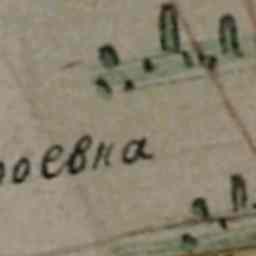 роевна